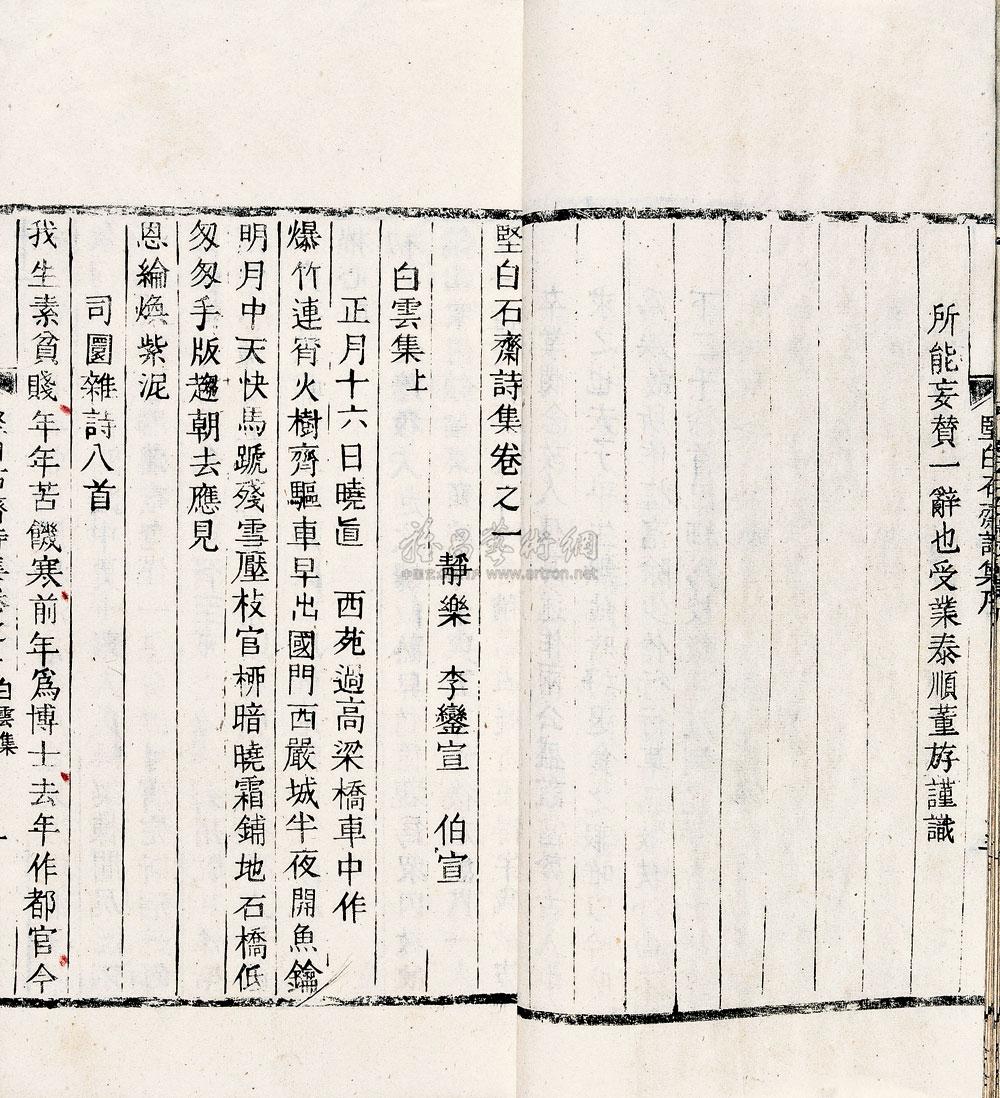 堅白石齋詩集序
所能妄贊一辭也受業泰順董斿謹識
堅白石齋詩集卷之一
靜樂 李鑾宣 伯宣
白雲集上
正月十六日曉直 西苑過高梁橋車中作
爆竹連宵火樹齊驅車早出國門西嚴城半夜開魚鑰
明月中天快馬蹏殘雪壓枝官栁暗曉霜鋪地石橋低
匆匆手版趨朝去應見
恩綸煥紫泥
司圜雜詩八首
我生素貧賤年年苦饑寒前年爲博士去年作都官今
堅白石齋詩集卷之一 白雲集 一
雅昌藝術網
www.artron.net